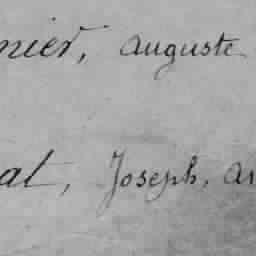 nier, Auguste
al, Joseph, an